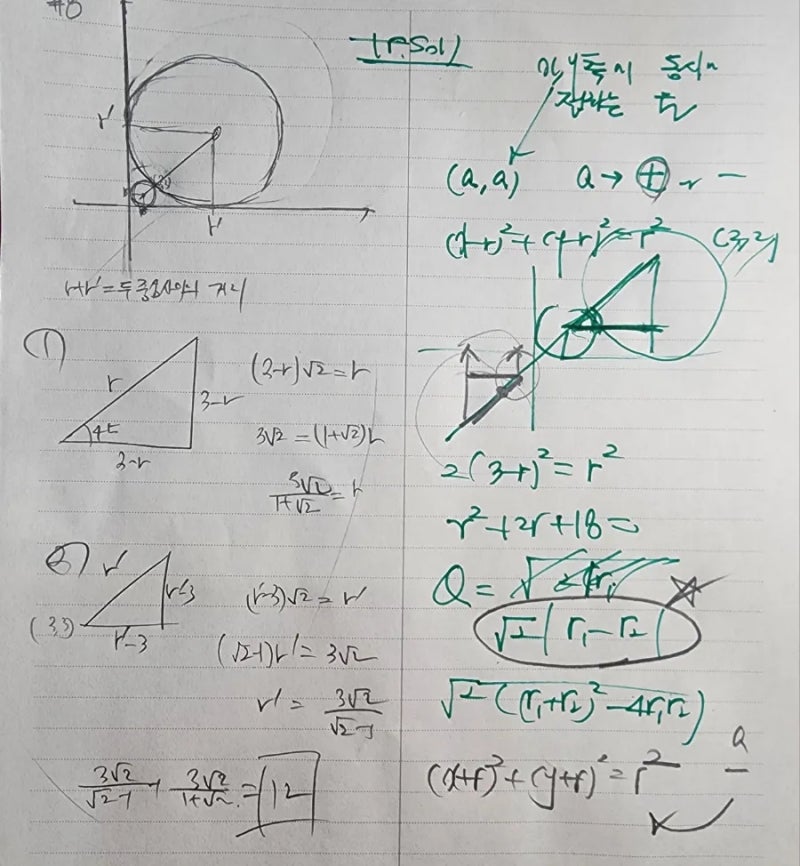 #8
r'
r'
r+r'=두 중심사이의 거리
①
r
45
3-r
3-r
(3-r)√2=r
3√2=(1+√2)r
3√2/(1+√2)=r
②
r'
r'-3
(3,3)
r'-3
(r'-3)√2=r'
(√2-1)r'=3√2
r'=3√2/(√2-1)
3√2/(√2-1)+3√2/(1+√2)=12
Sol)
동시에
접하는 원
(a,a) a→⊕ r -
(x-r)²+(y-r)²=r²
2(3-r)²=r²
r²+2r+18=0
Q=
√2|r₁-r₂|
√2((r₁+r₂)²-4r₁r₂)
(x+r)²+(y+r)²=r²
a